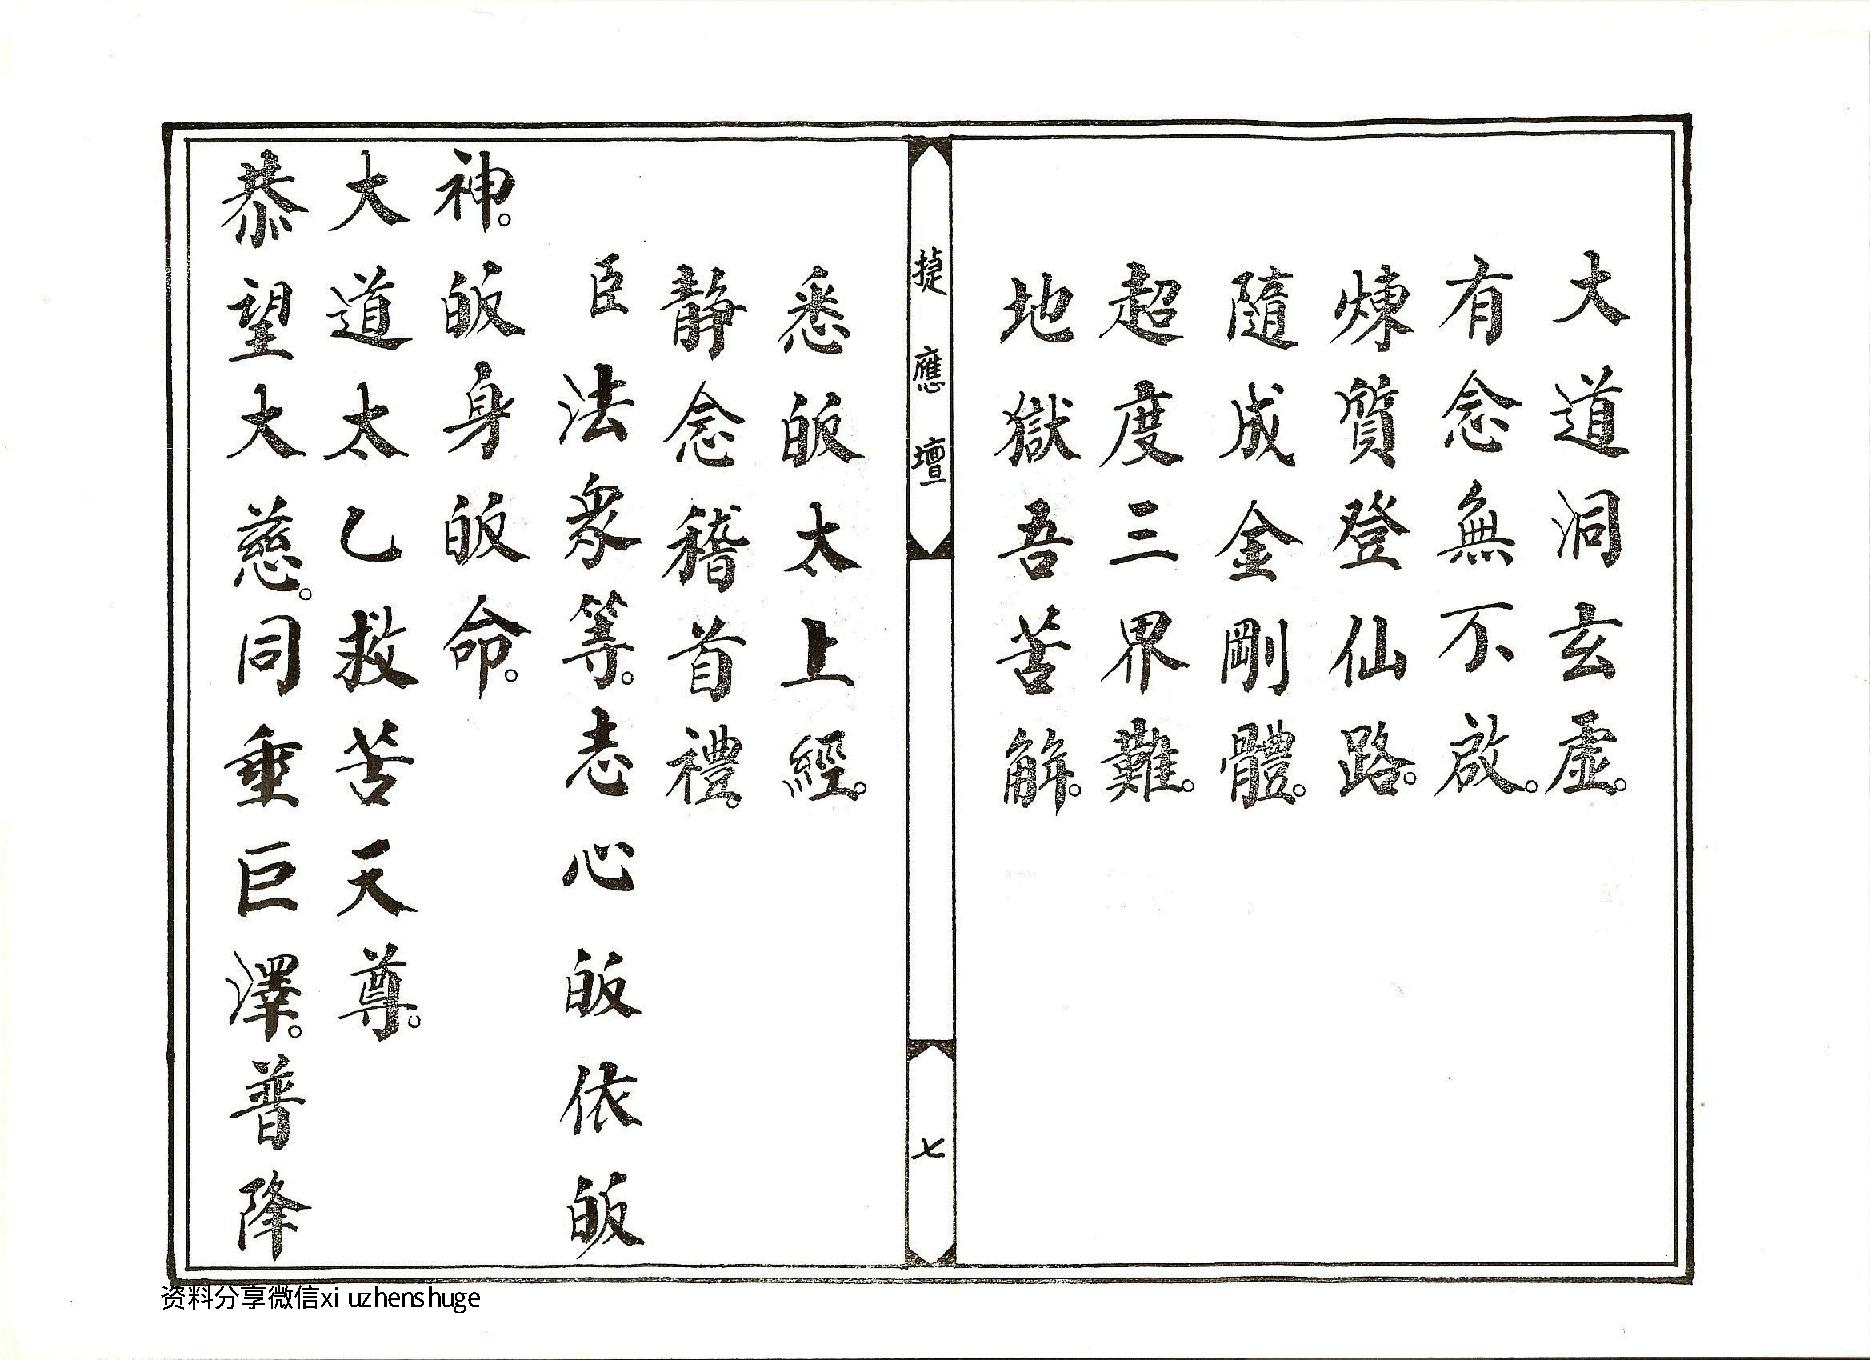 大道洞玄虛。
有念無不啟。
煉質登仙路。
隨成金剛體。
超度三界難。
地獄吾苦解。
捷應壇
七
悉皈太上經。
靜念稽首禮。
臣法眾等。志心皈依皈
神。皈身皈命。
大道太乙救苦天尊。
恭望大慈。同垂巨澤。普降
资料分享微信xiuzhenshuge